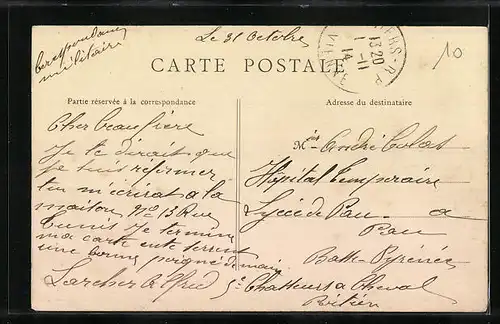 Correspondance
militaire
Le 31 Octobre
10
CARTE POSTALE
13 20
1-11
14
Partie réservée à la correspondance
Adresse du destinataire
Cher beaufrere
Je te dirait que
je suis réformer
tu m'écrirat a la
maison No 13 Rue
Je termine
ma carte en te serrent
une bonne poigné de main
Larcher
M André Colas
Hôpital temporaire
Lycée de Pau a
Pau
Bass-Pyrénées
5e Chasseurs a Cheval